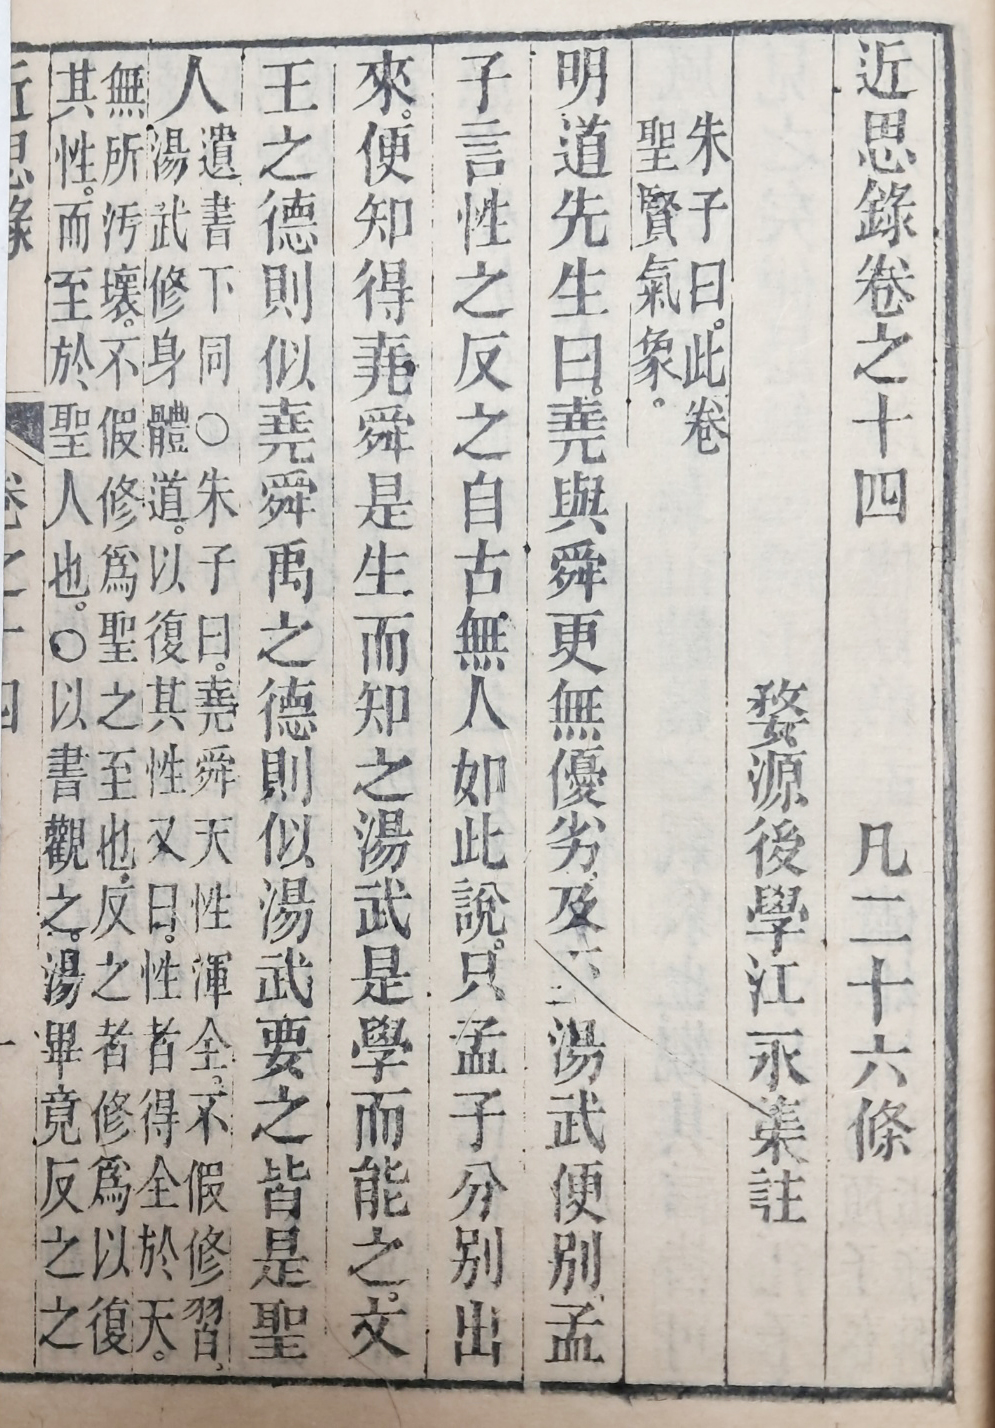 近思錄卷之十四　凡二十六條
婺源後學江永集註
朱子曰。此卷
聖賢氣象。
明道先生曰。堯與舜更無優劣、及至湯武便別、孟
子言性之反之自古無人如此說。只孟子分別出
來。便知得堯舜是生而知之湯武是學而能之。文
王之德則似堯舜禹之德則似湯武要之皆是聖
人
遺書下同○朱子曰。堯舜天性渾全。不假修習。
湯武修身體道。以復其性又曰。性者得全於天。
無所汚壞。不假修爲聖之至也、反之者修爲以復
其性。而至於聖人也。○以書觀之。湯畢竟反之之
近思錄　卷之十四　一